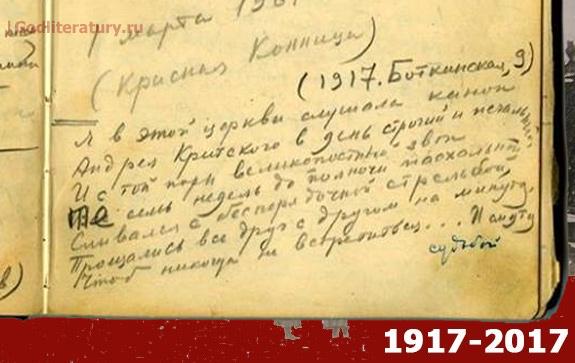 Godliteratury.ru
марта
(Красная Конница)
(1917. Боткинская, 9)
Я в этой церкви слушала канон
Андрея Критского в день строгий и печальный
И с той поры великопостный звон
Те семь недель до полночи пасхальной
Сливался с беспорядочной стрельбой
Прощались все друг с другом на минуту,
Чтоб никогда не встретиться... И смуту
судьбой
1917-2017